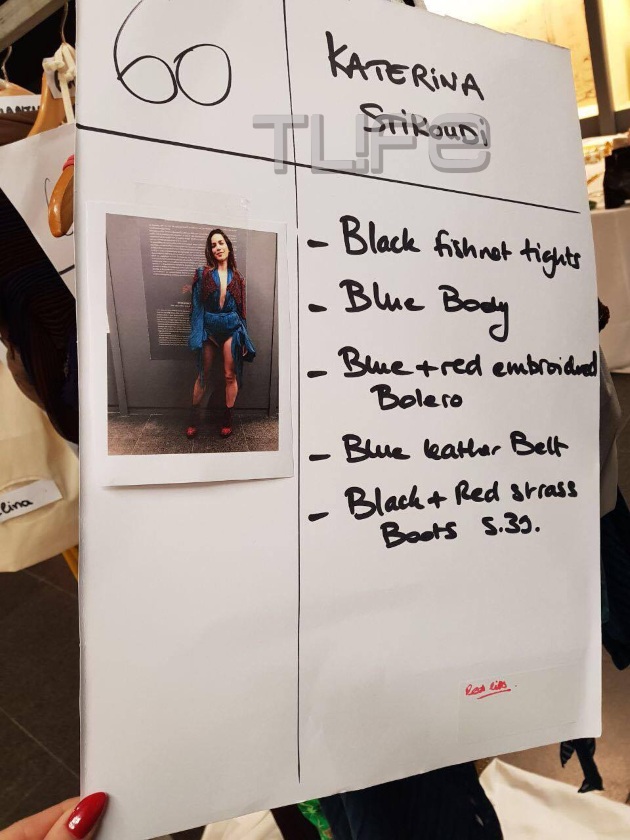 60
KATERiNA
STiKOUDi
TLIFE
- Black fishnet tights
- Blue Body
- Blue + red embroidered
Bolero
- Blue leather Belt
- Black + Red strass
Boots S.39.
Red lips
lina